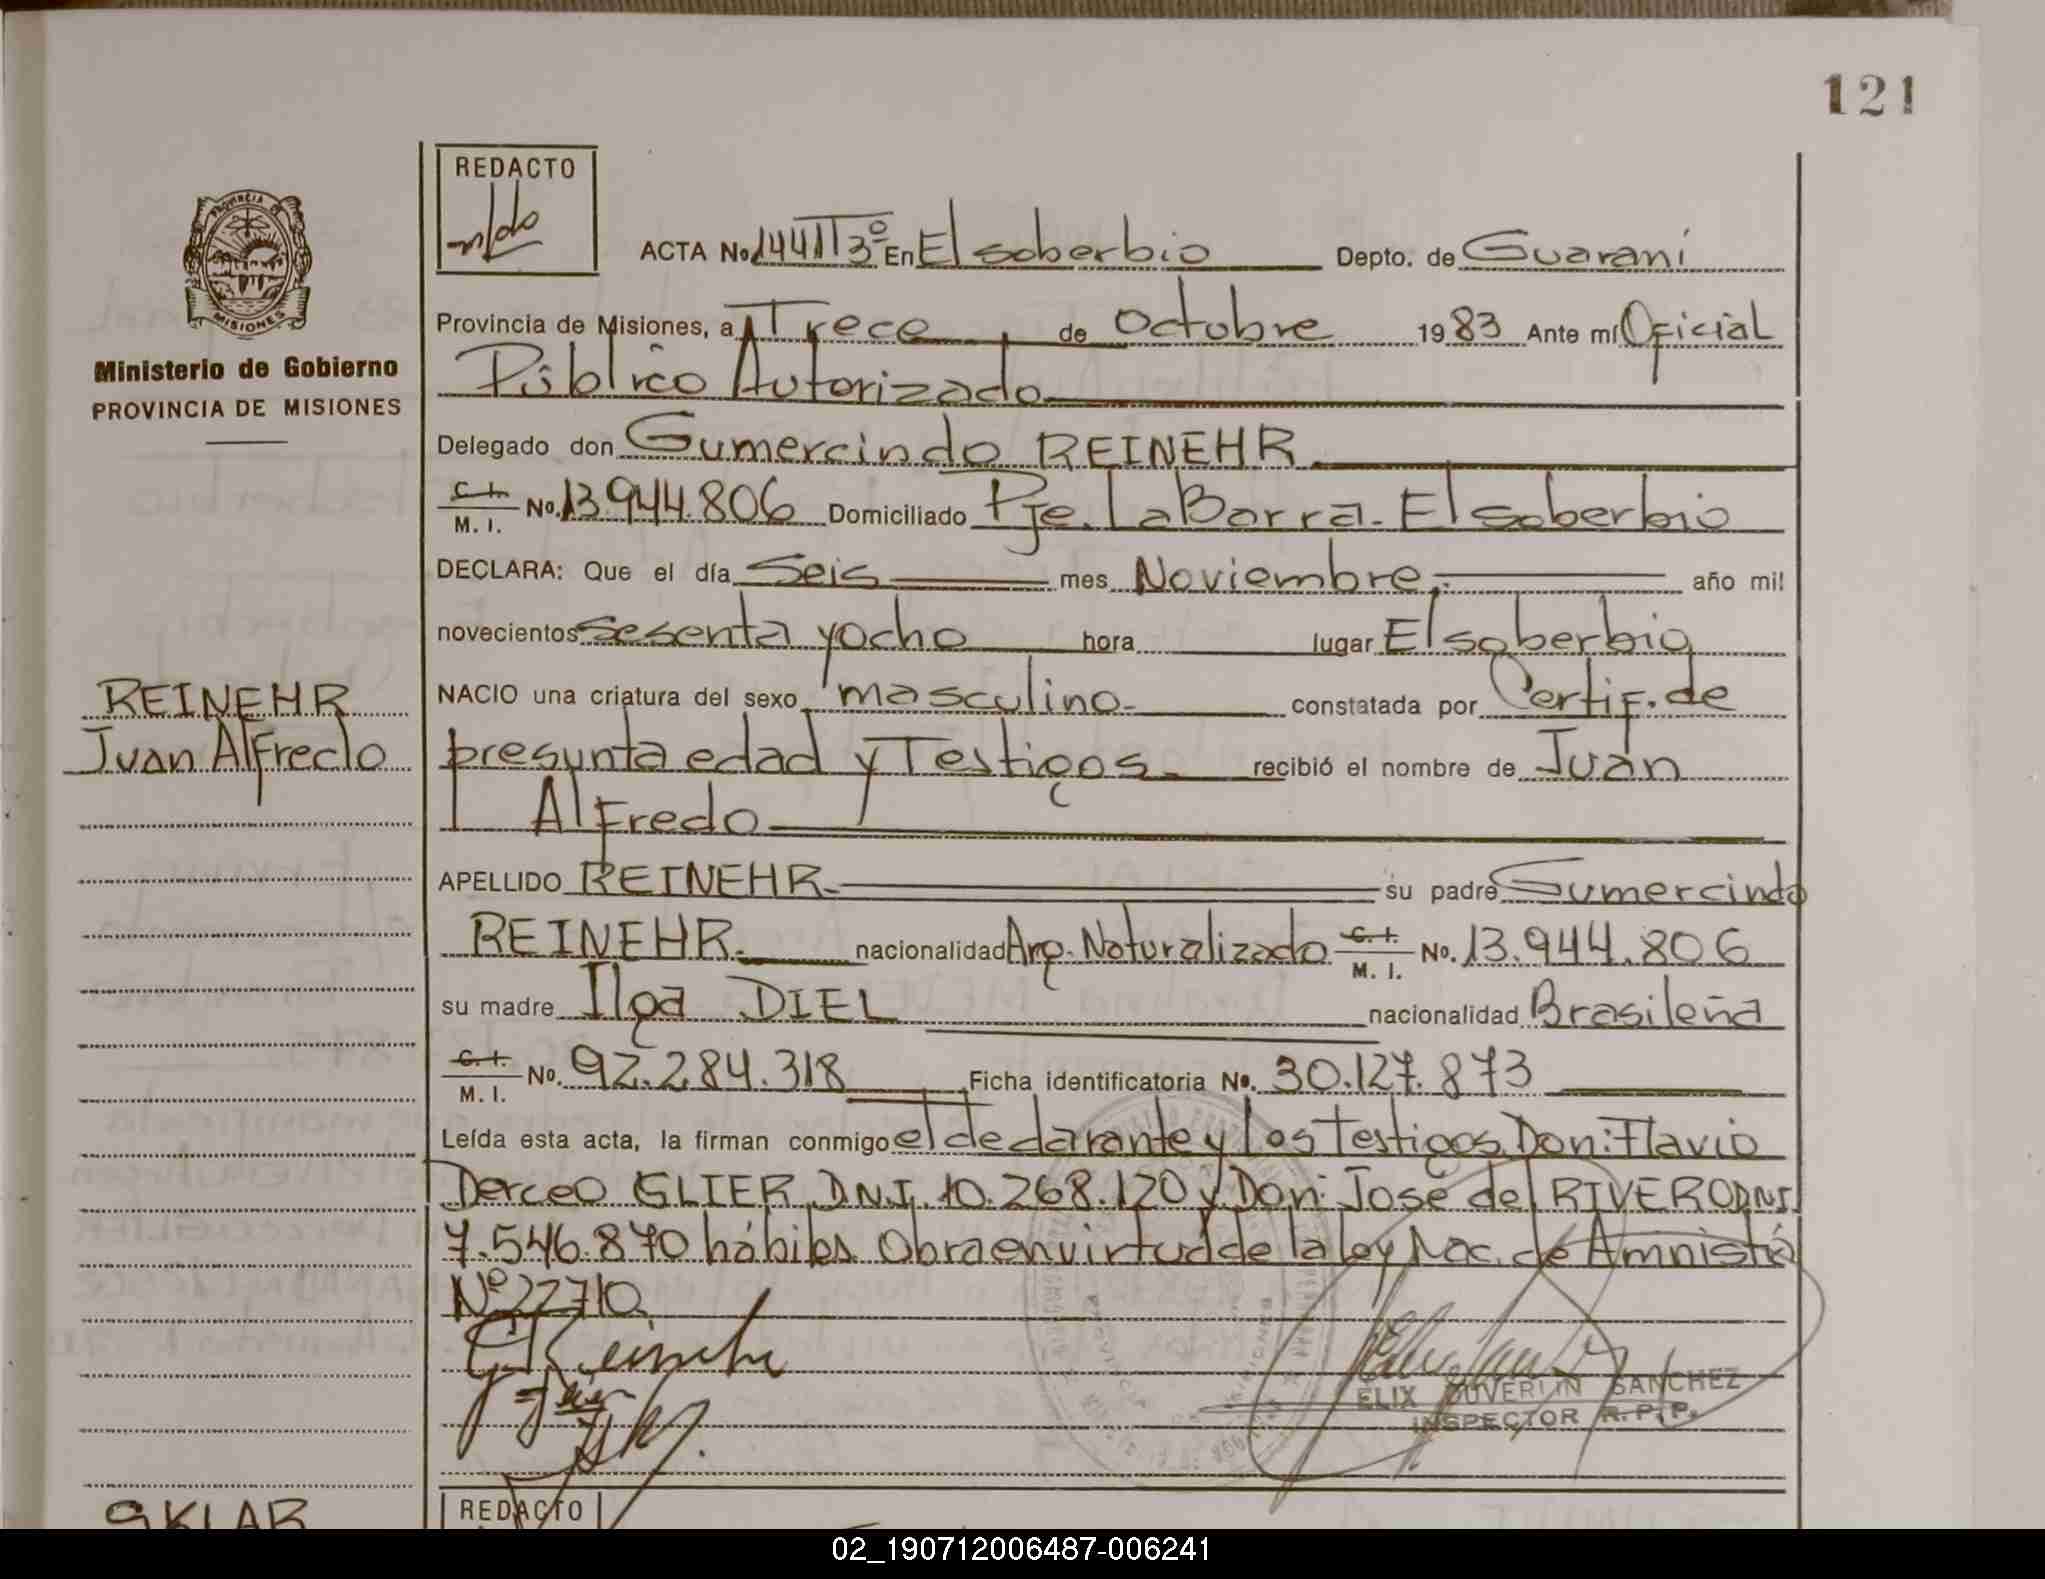 121
REDACTO
ACTA No. 144 T 3º En El soberbio Depto. de Guaraní
Provincia de Misiones, a Trece de Octubre 1983 Ante mí Oficial
Público Autorizado
Delegado don Gumercindo REINEHR
C.I. M. I. No. 13.944.806 Domiciliado Pje. La Barra. El soberbio
DECLARA: Que el día Seis mes Noviembre. año mil
novecientos sesenta y ocho hora lugar El soberbio
NACIO una criatura del sexo masculino constatada por Certif. de
presunta edad y Testigos. recibió el nombre de Juan
Alfredo
APELLIDO REINEHR su padre Gumercindo
REINEHR. nacionalidad Arg. Naturalizado C.I. M. I. No. 13.944.806
su madre Ilga DIEL nacionalidad Brasileña
C.I. M. I. No. 92.284.318 Ficha identificatoria No. 30.127.873
Leída esta acta, la firman conmigo el declarante y los Testigos Don: Flavio
Derceo GLIER D.N.I. 10.268.120 y Don: José del RIVERO DNI
7.546.870 hábiles. Obra en virtud de la ley Nac. de Amnistía
Nº 22710
ELIX DUVERLIN SANCHEZ
INSPECTOR R.P.P.
PROVINCIA DE MISIONES
Ministerio de Gobierno
PROVINCIA DE MISIONES
REINEHR
Juan Alfredo
SKLAR
REDACTO
02_190712006487-006241